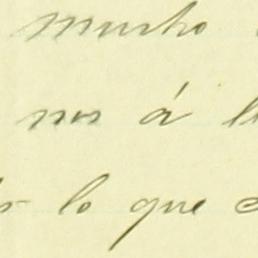 mucho
nos á
lo que